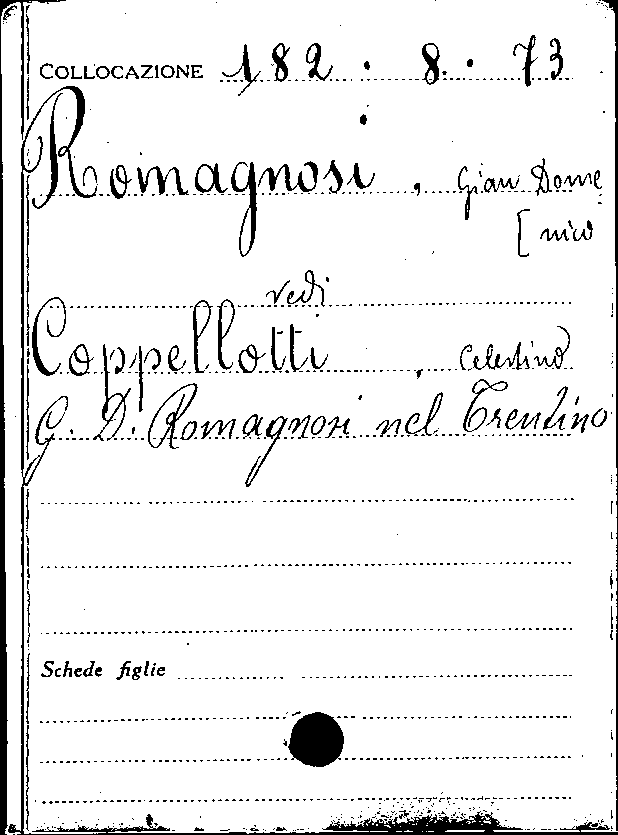 COLLOCAZIONE 182 . 8 . 73
Romagnosi, Gian Dome
[nico
vedi
Coppellotti, Celestino
G. D. Romagnosi nel Trentino
Schede figlie